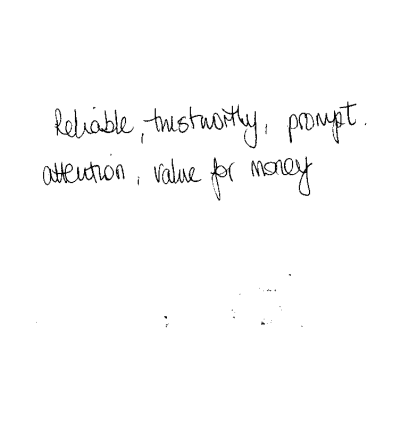 Reliable, trustworthy, prompt.
attention, value for money